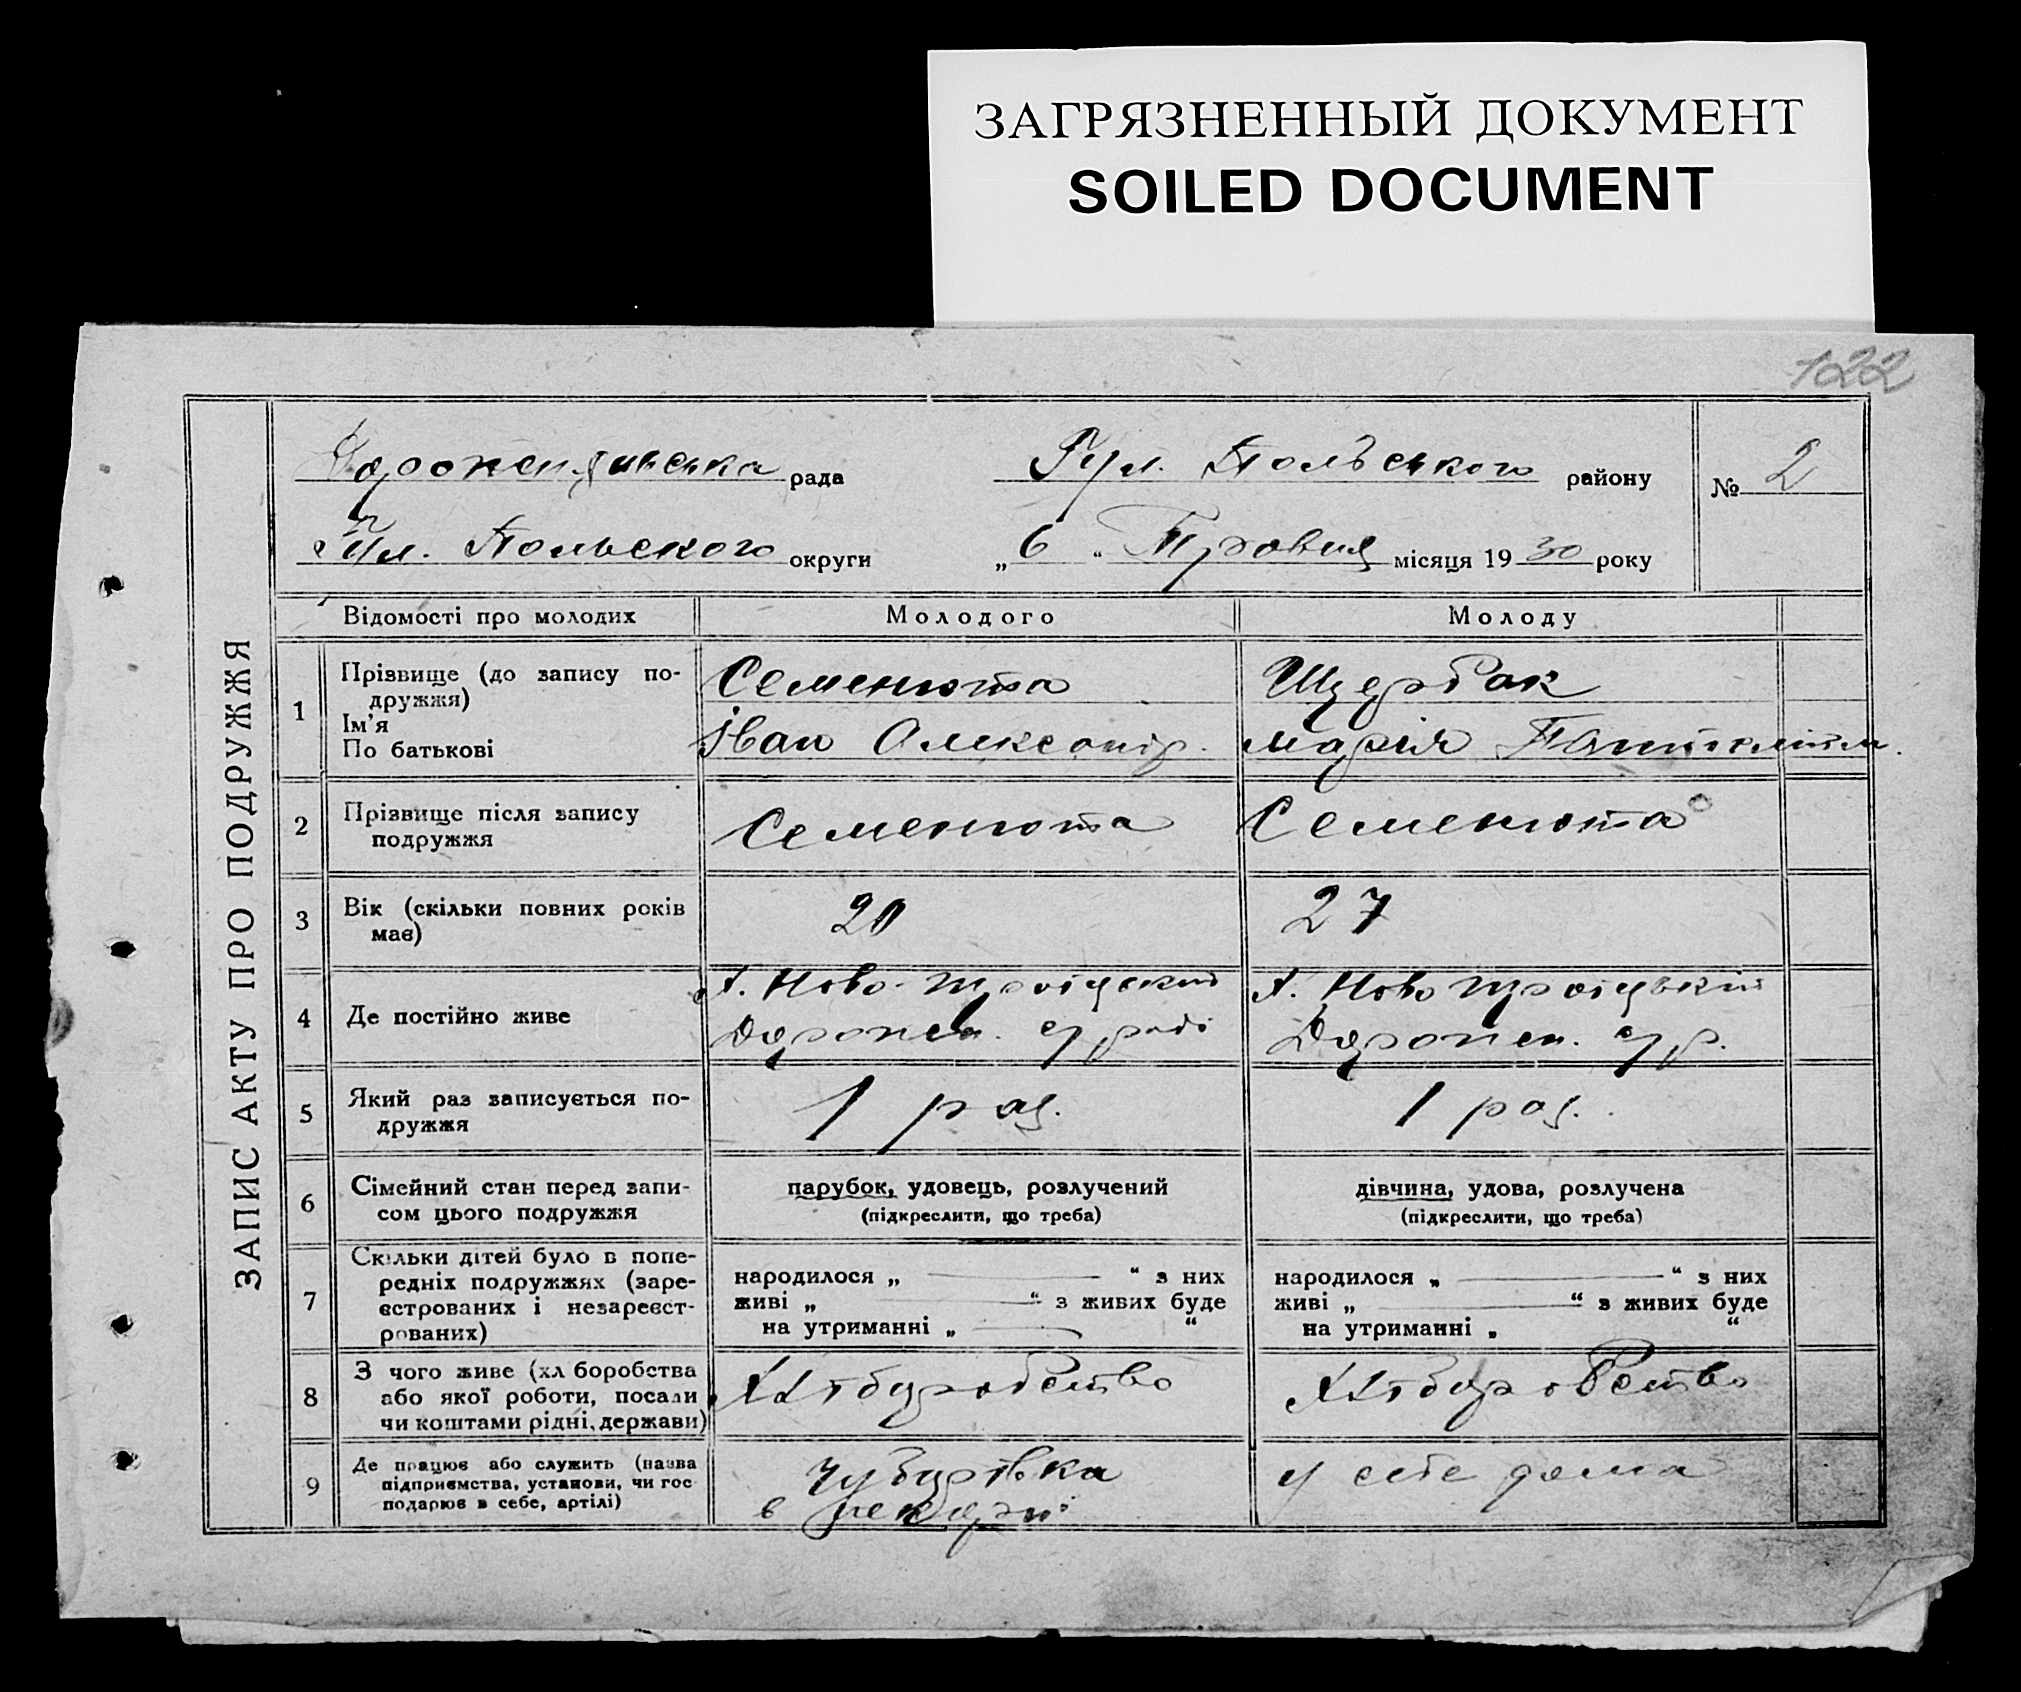 ЗАГРЯЗНЕННЫЙ ДОКУМЕНТ
SOILED DOCUMENT
122
ЗАПИС АКТУ ПРО ПОДРУЖЖЯ
рада
Гул. Польського району
№ 2
Гул. Польського округи
„ 6 “ Травня місяця 19 30 року
Відомості про молодих
Молодого
Молоду
1
Прізвище (до запису по-
дружжя)
Ім'я
По батькові
Семенюта
Іван Олександр.
Щербак
Марія
2
Прізвище після запису
подружжя
Семенюта
Семенюта
3
Вік (скільки повних років
має)
20
27
4
Де постійно живе
х. Ново-Троіцский
х. Ново Троіцький
5
Який раз записується по-
дружжя
1 раз.
1 раз.
6
Сімейний стан перед запи-
сом цього подружжя
парубок, удовець, розлучений
(підкреслити, що треба)
дівчина, удова, розлучена
(підкреслити, що треба)
7
Скільки дітей було в попе-
редніх подружжях (заре-
єстрованих і незареєст-
рованих)
народилося „ “ з них
живі „ “ з живих буде
на утриманні „ “
народилося „ “ з них
живі „ “ з живих буде
на утриманні „ “
8
З чого живе (хл боробства
або якої роботи, посади
чи коштами рідні, держави)
9
Де працює або служить (назва
підприємства, установи, чи гос-
подарює в себе, артілі)
в
у себе дома